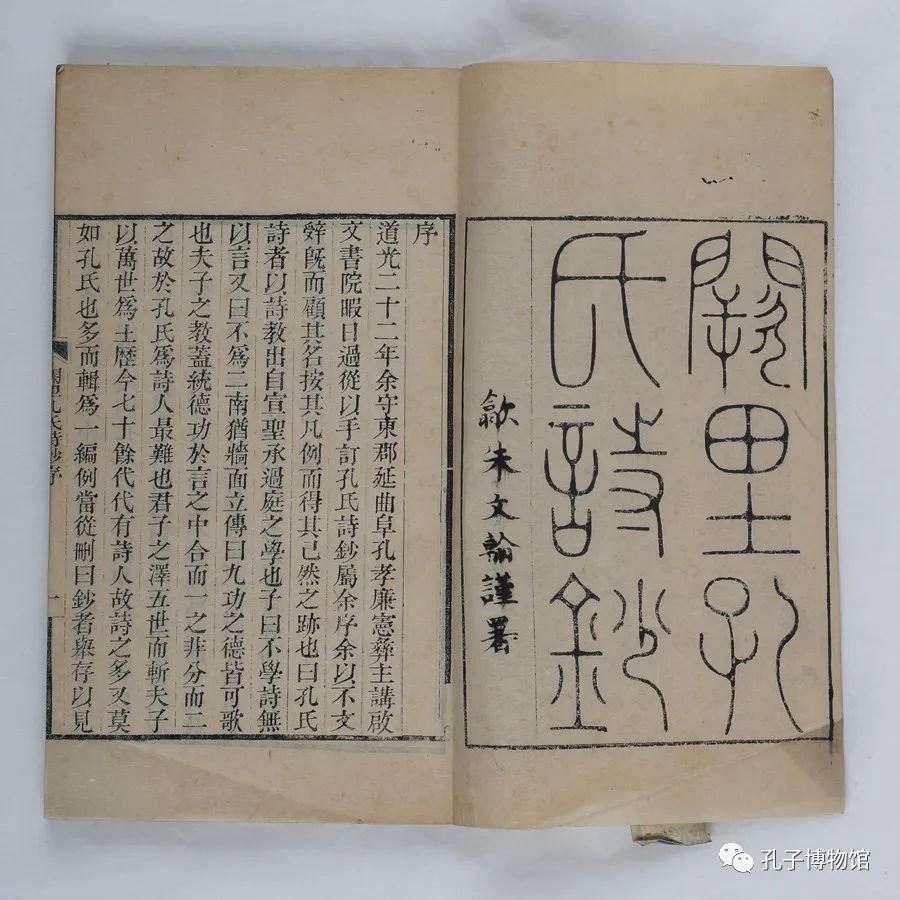 闕里孔
氏詩鈔
歙朱文翰謹署
序
道光二十二年余守東郡延曲阜孔孝廉憲彝主講啟
文書院暇日過從以手訂孔氏詩鈔屬余序余以不文
辤旣而顧其名按其凡例而得其已然之跡也曰孔氏
詩者以詩教出自宣聖承過庭之學也子曰不學詩無
以言又曰不爲二南猶牆面立傳曰九功之德皆可歌
也夫子之教蓋統德功於言之中合而一之非分而二
之故於孔氏爲詩人最難也君子之澤五世而斬夫子
以萬世爲土歷今七十餘代代有詩人故詩之多又莫
如孔氏也多而輯爲一編例當從刪曰鈔者舉存以見
闕里孔氏詩鈔序
一
孔子博物馆